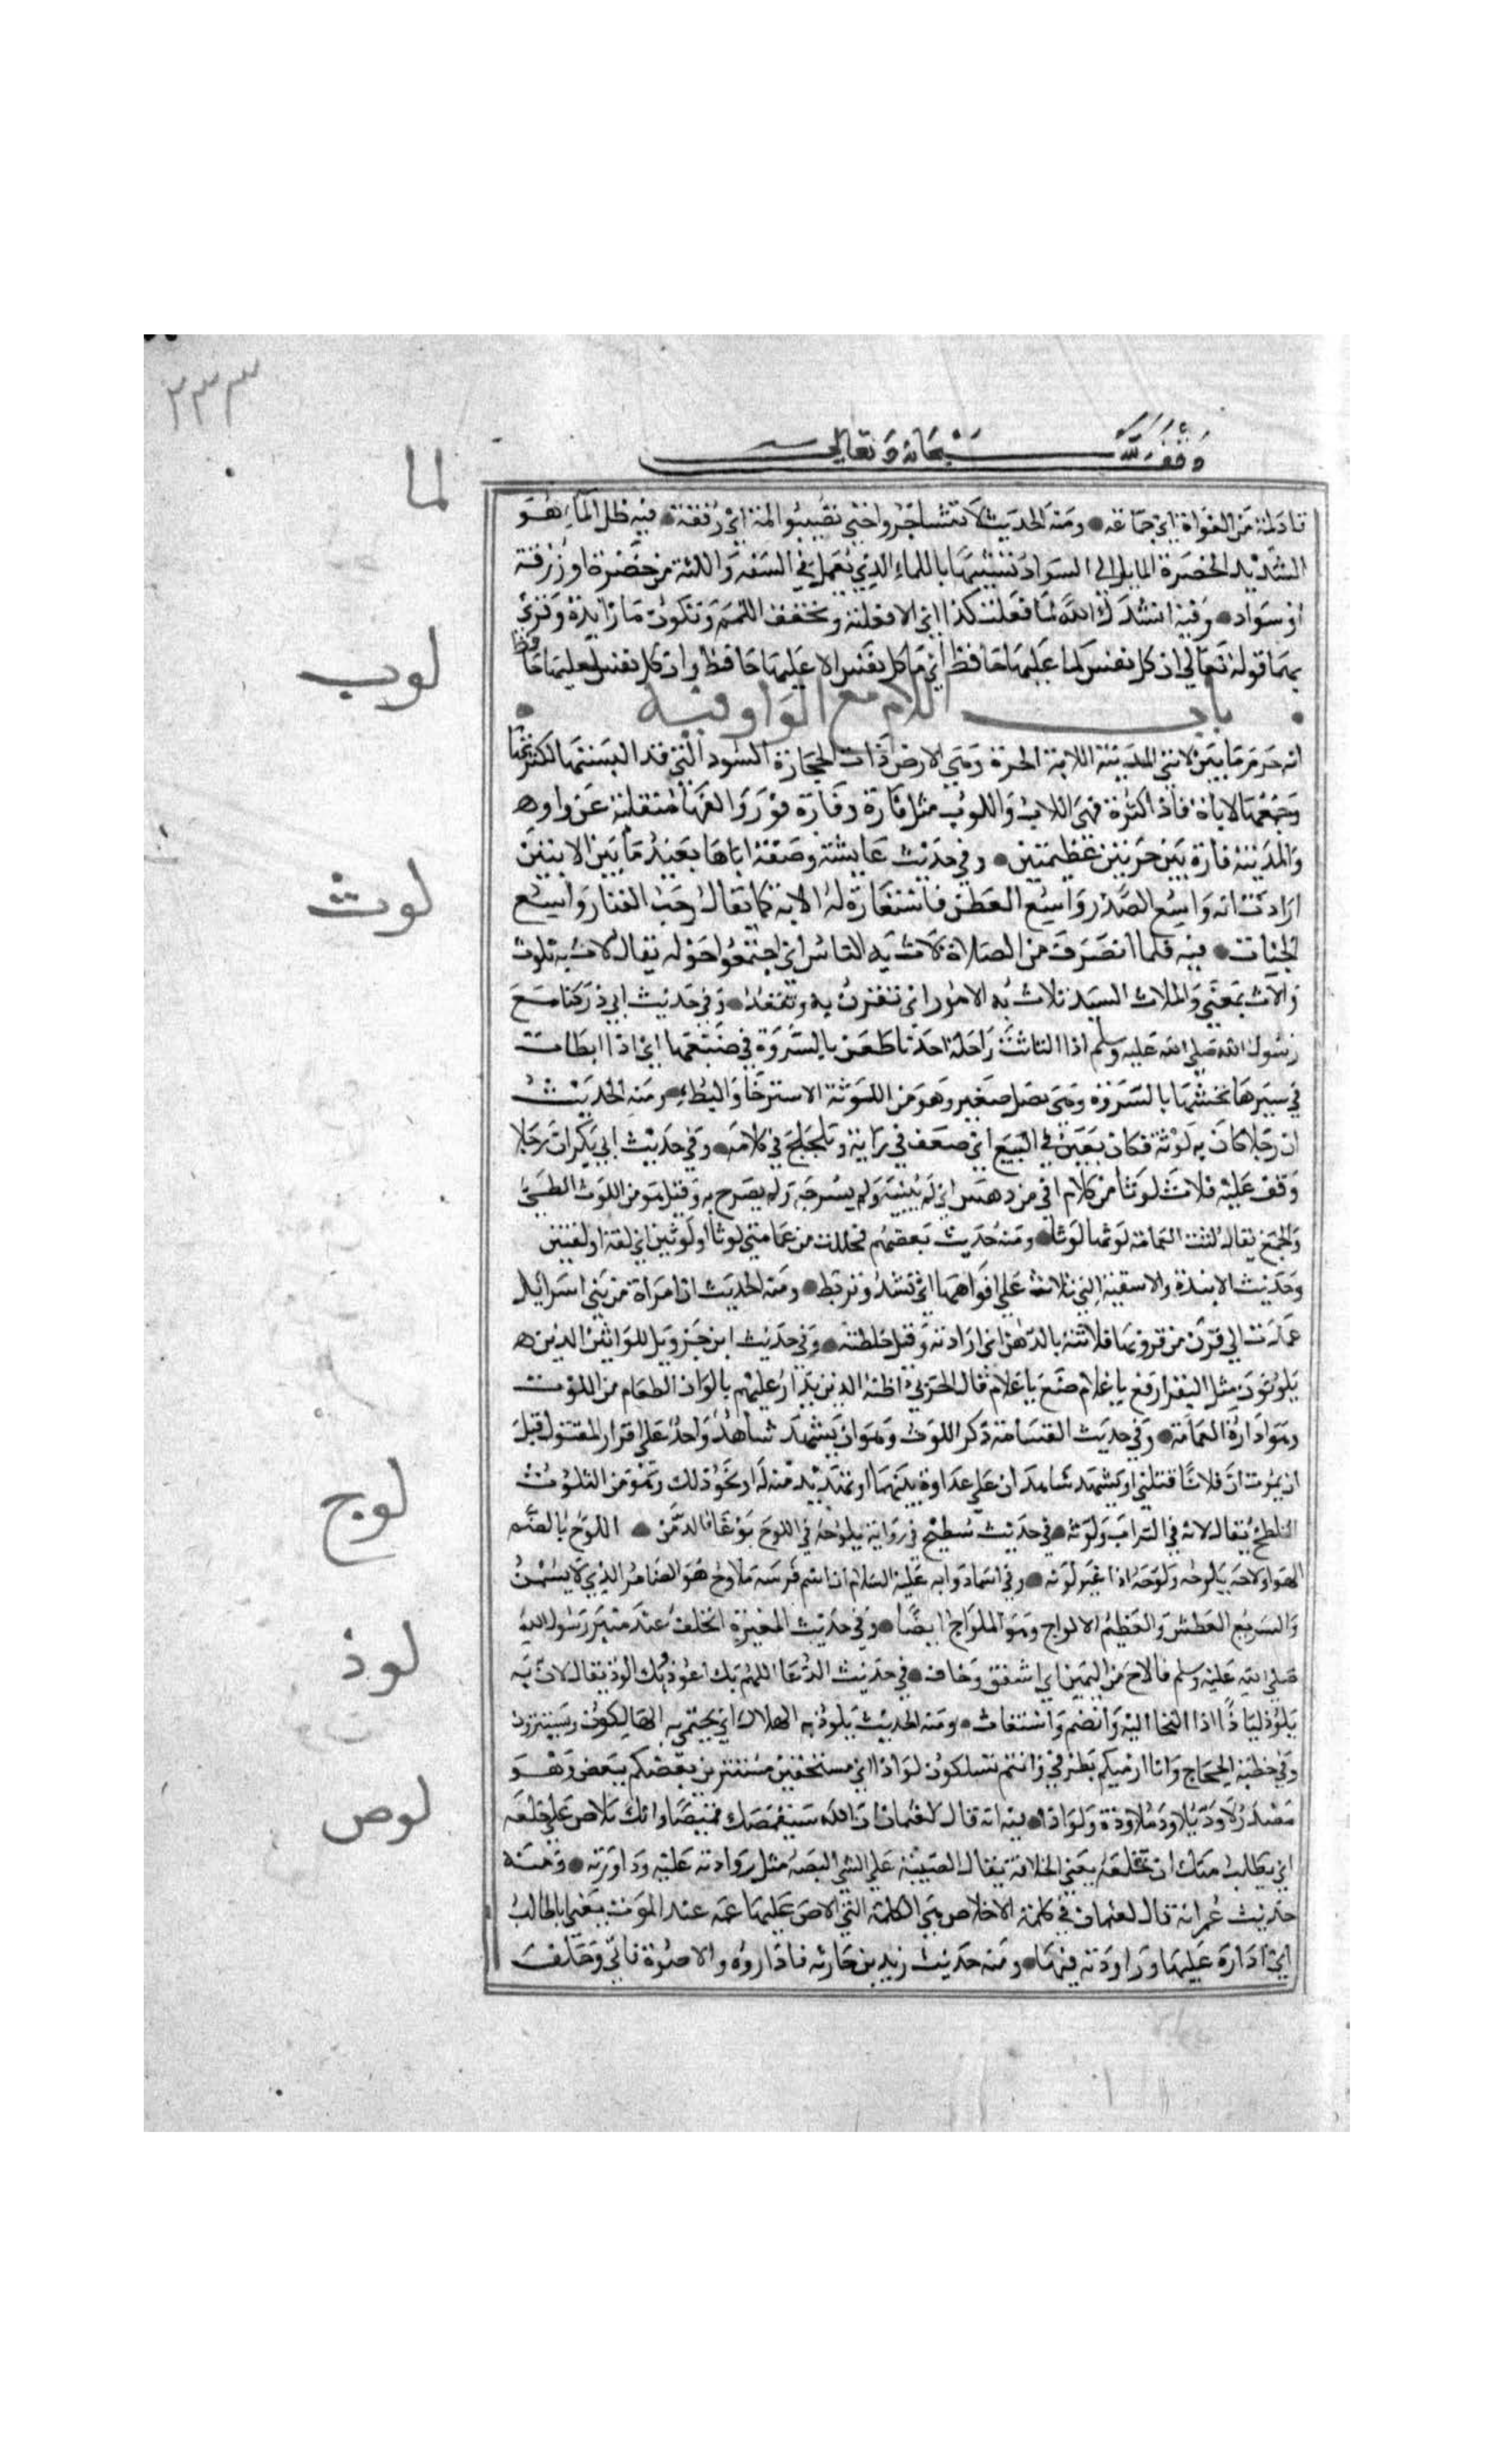 ٢٣٣
وقف لله سبحانه وتعالى
لما
تادلمة من الغواة اي جماعة ومنه الحديث لا تتسافروا حتى تصيبوا لمة اي رفقة فيه ظل المأ هو
الشديد الخضرة المايل الى السواد تشبيها باللماء الذي يعمل في الشفة واللثة من خضرة او زرقة
او سواد وفيه انشدك الله لما فعلت كذا اي الا فعلته وتخفف الميم وتكون ما زايدة وقرئ
بهما قوله تعالى ان كل نفس لما عليها حافظ اي ما كل نفس الا عليها حافظ وان كل نفس لعليها حافظ
لوب
باب اللام مع الواو فيه
انه حرم ما بين لابتي المدينة اللابة الحرة وهي الارض ذات الحجارة السود التي قد البستها لكثرتها
وجمعها لابات فاذا كثرت فهي اللاب واللوب مثل قارة وقارة وقور والفها منقلبة عن واو
والمدينة قارة بين حرتين عظيمتين وفي حديث عايشة وصفت اباها بعيد ما بين الابتين
لوث
ارادت انه واسع الصدر واسع العطن فاستعارت له الابة كما تقال رحب الفنار واسع
الجنات فيه فلما انصرف من الصلاة لاث به الناس اي اجتمعوا حوله يقال لاث به يلوث
والاث بمعنى والملاث السيد تلاث به الامور اي تقرن به وتعقد وفي حديث ابي ذر كنا مع
رسول الله صلى الله عليه وسلم اذا التاثت راحلة احدنا طعن بالسروة في ضبعها اي اذا ابطأت
في سيرها نخسها بالسروة وهي نصل صغير وهو من اللوثة الاسترخا والبطء ومنه الحديث
ان رجلا كان به لوثة فكان يغبن في البيع اي ضعف في رايه وتلجلج في كلامه وفي حديث ابي بكر ان رجلا
وقف عليه فلاث لوثا من كلام في من دهس اي لم يبينه ولم يشرحه ولم يصرح به وقيل هو من اللوث الطي
والجمع يقال لثت العمامة لوثها لوثا ومنه حديث بعضهم فحللت من عمامتي لوثا او لوثين اي لفة او لفتين
وحديث الانبذة والاسقية التي تلاث على افواهها اي تشد وتربط ومنه الحديث ان امراة من بني اسرائيل
عمدت الى قرن من قرونها فلاثته بالدهن اي ادارته وقيل خلطته وفي حديث ابن جزء ويل للواثين الذين
يلوثون مثل البقر ارفع يا غلام ضع يا غلام قال الحربي اظنه الذين يدار عليهم بالوان الطعام من اللوث
وهو ادارة العمامة وفي حديث القسامة ذكر اللوث وهو ان يشهد شاهد واحد على اقرار المقتول قبل
ان يموت ان فلانا قتلني او يشهد شاهدان على عداوة بينهما او تهديد منه له او نحو ذلك وهو من التلوث
لوح
التلطخ يقال لاثه في التراب ولوثه في حديث سطيح في رواية يلوحه في اللوح بوغاء الدمن اللوح بالضم
الهواء ولاحه يلوحه ولوحه اذا غير لونه وفي اسماء دوابه عليه السلام ان اسم فرسه ملاوح هو الضامر الذي لا يسمن
والسريع العطش والعظيم الالواح وهو الملواح ايضا وفي حديث المغيرة اتحلف عند منبر رسول الله
لوذ
صلى الله عليه وسلم فالاح من اليمين اي اشفق وخاف في حديث الدعا اللهم بك اعوذ وبك الوذ يقال لاذ به
يلوذ لياذا اذا التجا اليه وانضم واستغاث ومنه الحديث يلوذ به الهلاك اي يحتمي به الهالكون ويستترون
وفي خطبة الحجاج وانا ارميكم بطرفي وانتم تتسللون لواذا اي مستخفين مستترين بعضكم ببعض وهو
لوص
مصدر لاوذ يلاوذ ملاوذة ولواذا فيه انه قال لعثمان ان الله سيقمصك قميصا وانك تلاص على خلعه
اي يطلب منك ان تخلعه يعني الخلافة يقال الصيته على الشي اليصه مثل روادته عليه وداورته ومنه
حديث عمر انه قال لعثمان في كلمة الاخلاص هي الكلمة التي الاص عليها عمه عند الموت يعني ابا طالب
اي اداره عليها وراودته فيها ومنه حديث زيد بن حارثه فاداروه والاصوه فابى وحلف